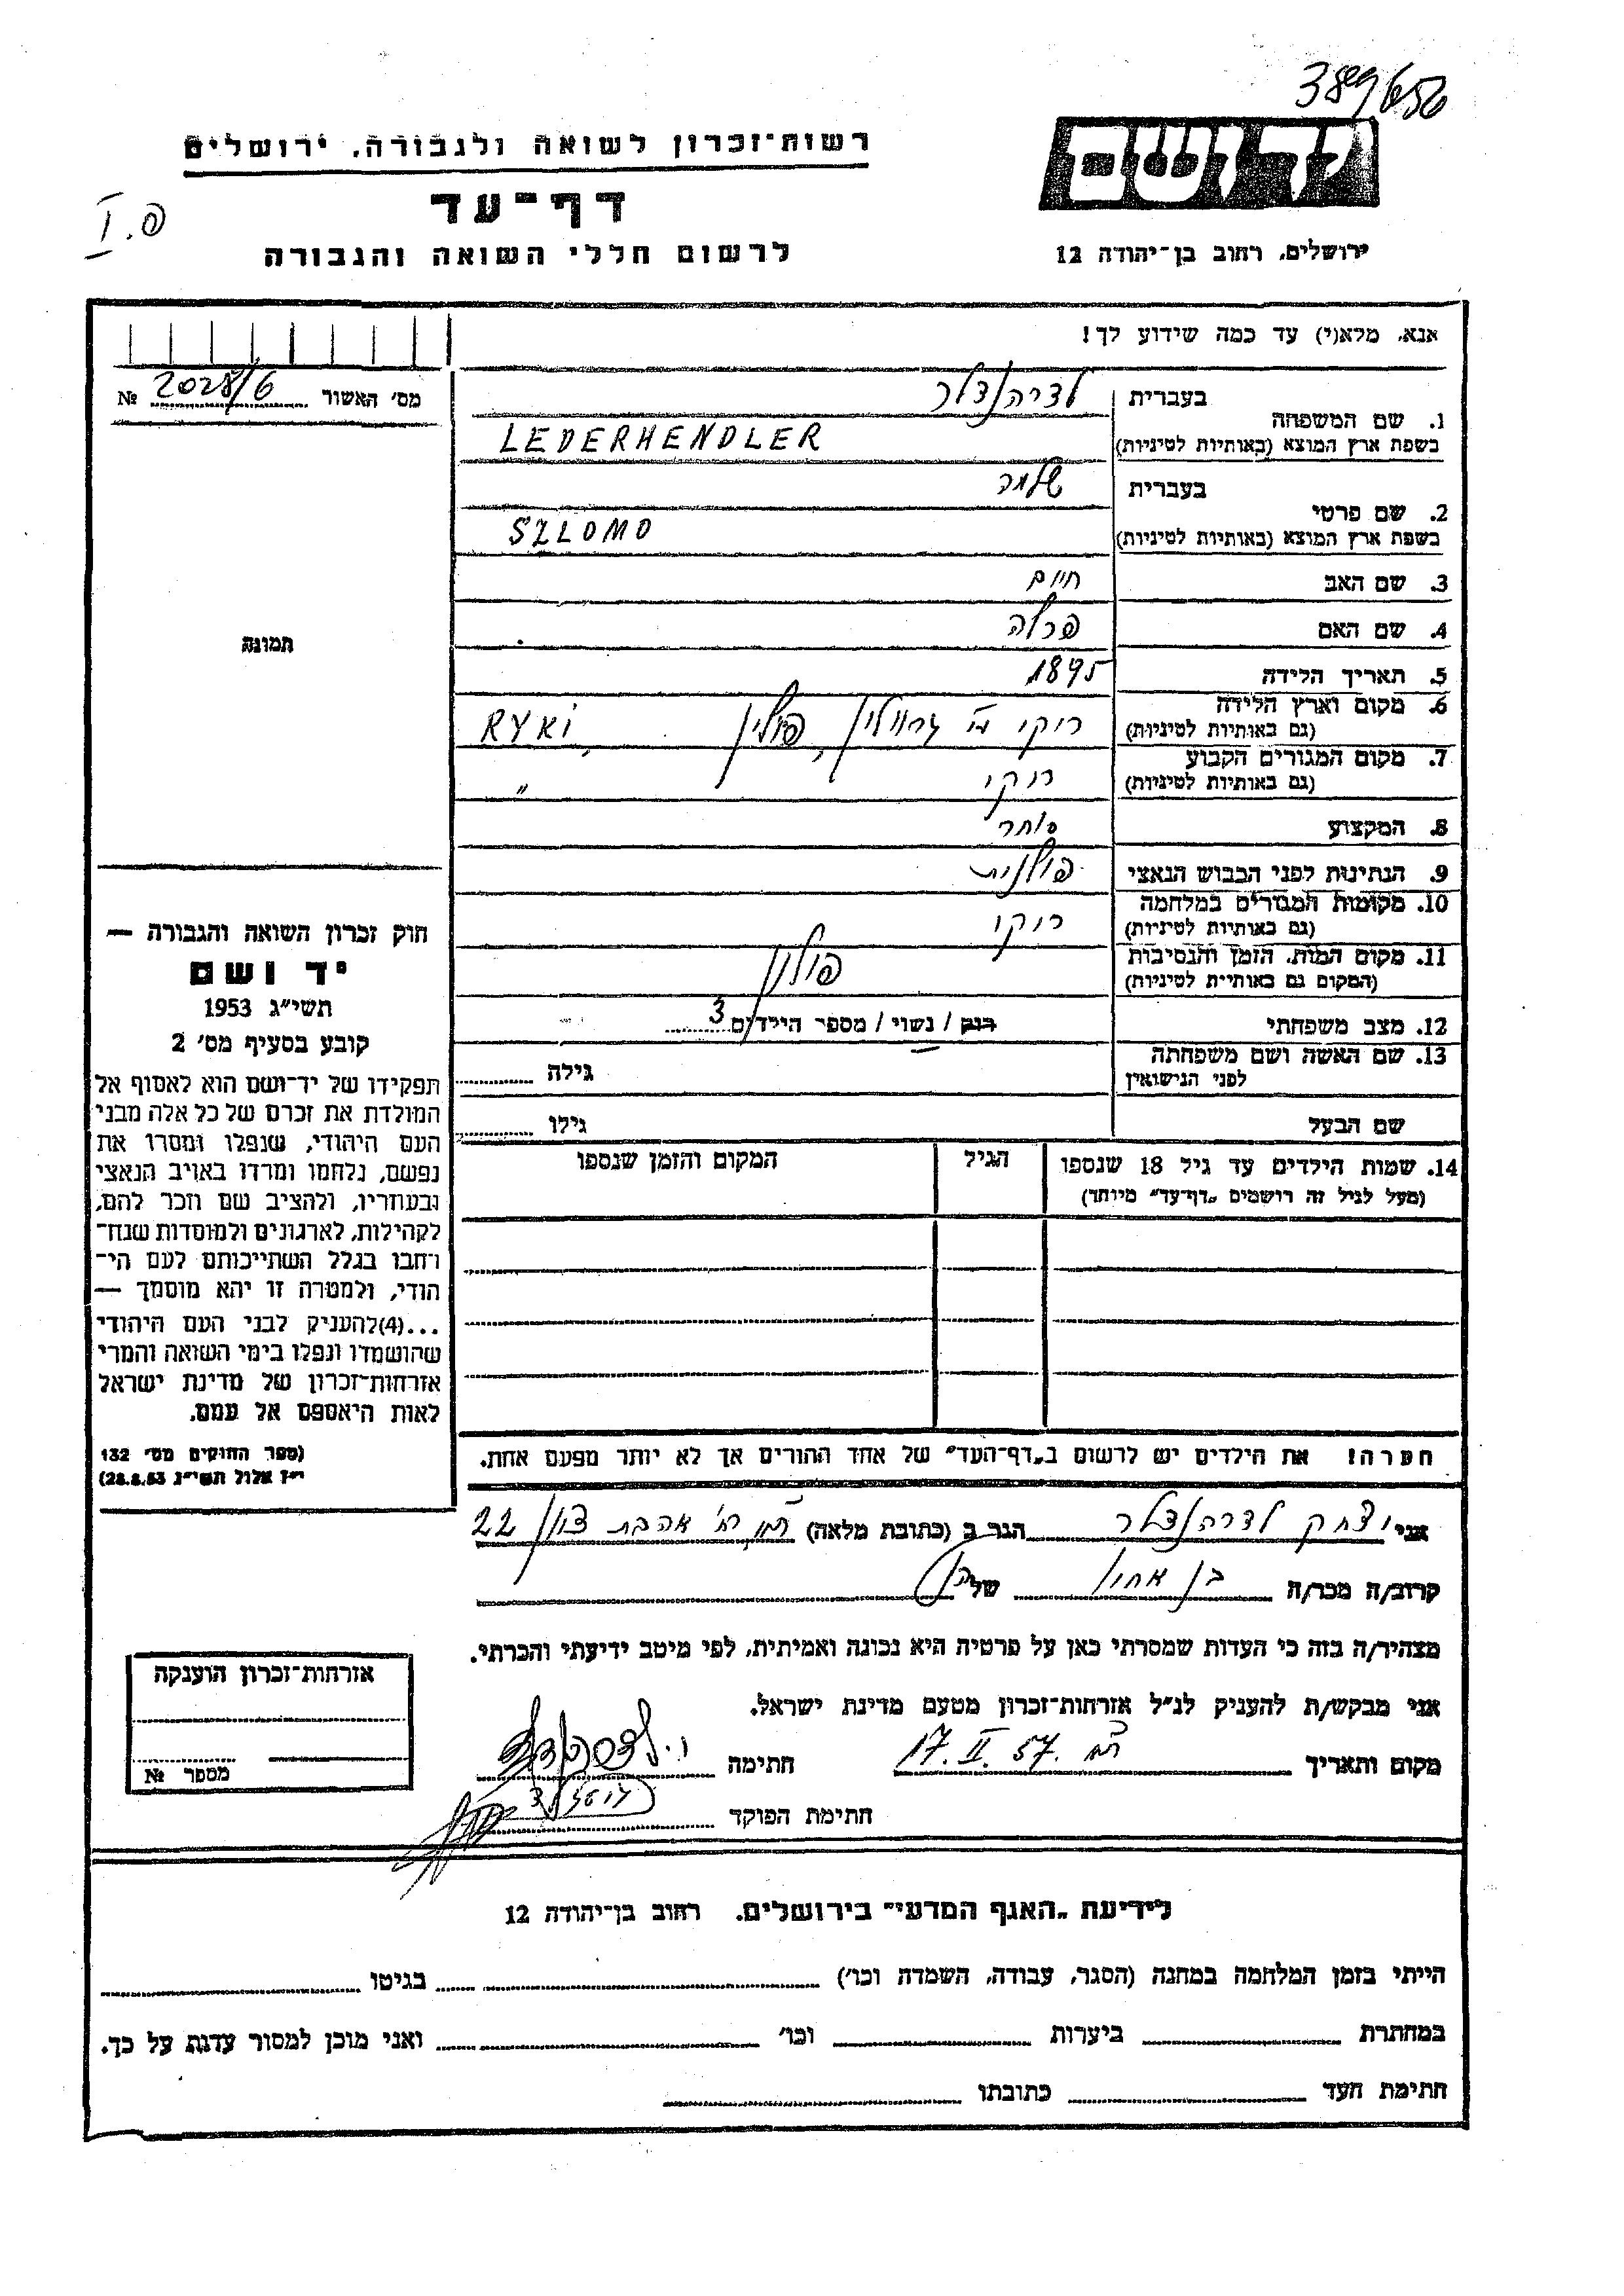 389656
רשות־זכרון לשואה ולגבורה, ירושלים
יד ושם
דף־עד
פ. I
לרשום חללי השואה והגבורה
ירושלים, רחוב בן־יהודה 12
אנא, מלא(י) עד כמה שידוע לך!
מס׳ האשור 2028/6 №
1. שם המשפחה
בעברית לדרהנדלר
בשפת ארץ המוצא (באותיות לטיניות) LEDERHENDLER
2. שם פרטי
בעברית שלמה
בשפת ארץ המוצא (באותיות לטיניות) SZLOMO
3. שם האב חיים
4. שם האם פרלה
5. תאריך הלידה 1895
6. מקום וארץ הלידה (גם באותיות לטיניות) רוקי פולין, RYKI,
7. מקום המגורים הקבוע (גם באותיות לטיניות) רוקי "
8. המקצוע סוחר
9. הנתינות לפני הכבוש הנאצי פולנית
10. מקומות המגורים במלחמה (גם באותיות לטיניות) רוקי
11. מקום המות, הזמן והנסיבות (המקום גם באותיות לטיניות) פולין
12. מצב משפחתי רווק / נשוי / מספר הילדים 3
13. שם האשה ושם משפחתה לפני הנישואין גילה
שם הבעל גילו
14. שמות הילדים עד גיל 18 שנספו הגיל המקום והזמן שנספו
(מעל לגיל זה רושמים „דף־עד״ מיוחד)
תמונה
חוק זכרון השואה והגבורה —
יד ושם
תשי״ג 1953
קובע בסעיף מס׳ 2
תפקידו של יד־ושם הוא לאסוף אל
המולדת את זכרם של כל אלה מבני
העם היהודי, שנפלו ומסרו את
נפשם, נלחמו ומרדו באויב הנאצי
ובעוזריו, ולהציב שם וזכר להם,
לקהילות, לארגונים ולמוסדות שנח־
רחבו בגלל השתייכותם לעם הי־
הודי, ולמטרה זו יהא מוסמך —
...(4)להעניק לבני העם היהודי
שהושמדו ונפלו בימי השואה והמרי
אזרחות־זכרון של מדינת ישראל
לאות היאספם אל עמם.
(ספר החוקים מס׳ 132
י״ז אלול תשי״ג 28.8.53)
הערה! את הילדים יש לרשום ב„דף־העד״ של אחד ההורים אך לא יותר מפעם אחת.
אני יצחק לדרהנדלר הגר ב (כתובת מלאה) רמת גן, רח׳ אהבת ציון 22
קרוב/ה מכר/ה בן אחיו של
מצהיר/ה בזה כי העדות שמסרתי כאן על פרטיה היא נכונה ואמיתית, לפי מיטב ידיעתי והכרתי.
אני מבקש/ת להעניק לנ״ל אזרחות־זכרון מטעם מדינת ישראל.
מקום ותאריך 17. II. 57. חתימה י. לדרהנדלר
חתימת הפוקד
אזרחות־זכרון הוענקה
מספר №
לידיעת „האגף המדעי״ בירושלים, רחוב בן־יהודה 12
הייתי בזמן המלחמה במחנה (הסגר, עבודה, השמדה וכו׳) בגיטו
במחתרת ביערות וכו׳ ואני מוכן למסור עדות על כך.
חתימת העד כתובתו